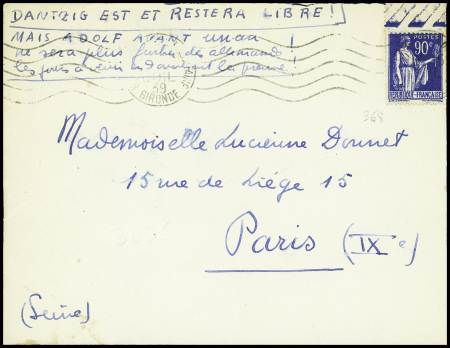 DANTZIG EST ET RESTERA LIBRE !
MAIS ADOLF AVANT un an !
ne sera plus des allemands
les jours à venir en la preuve !
POSTES
90c
REPUBLIQUE-FRANÇAISE
39
GIRONDE
368
Mademoiselle Lucienne Donnet
15 rue de Liège 15
Paris (IXe)
(Seine)